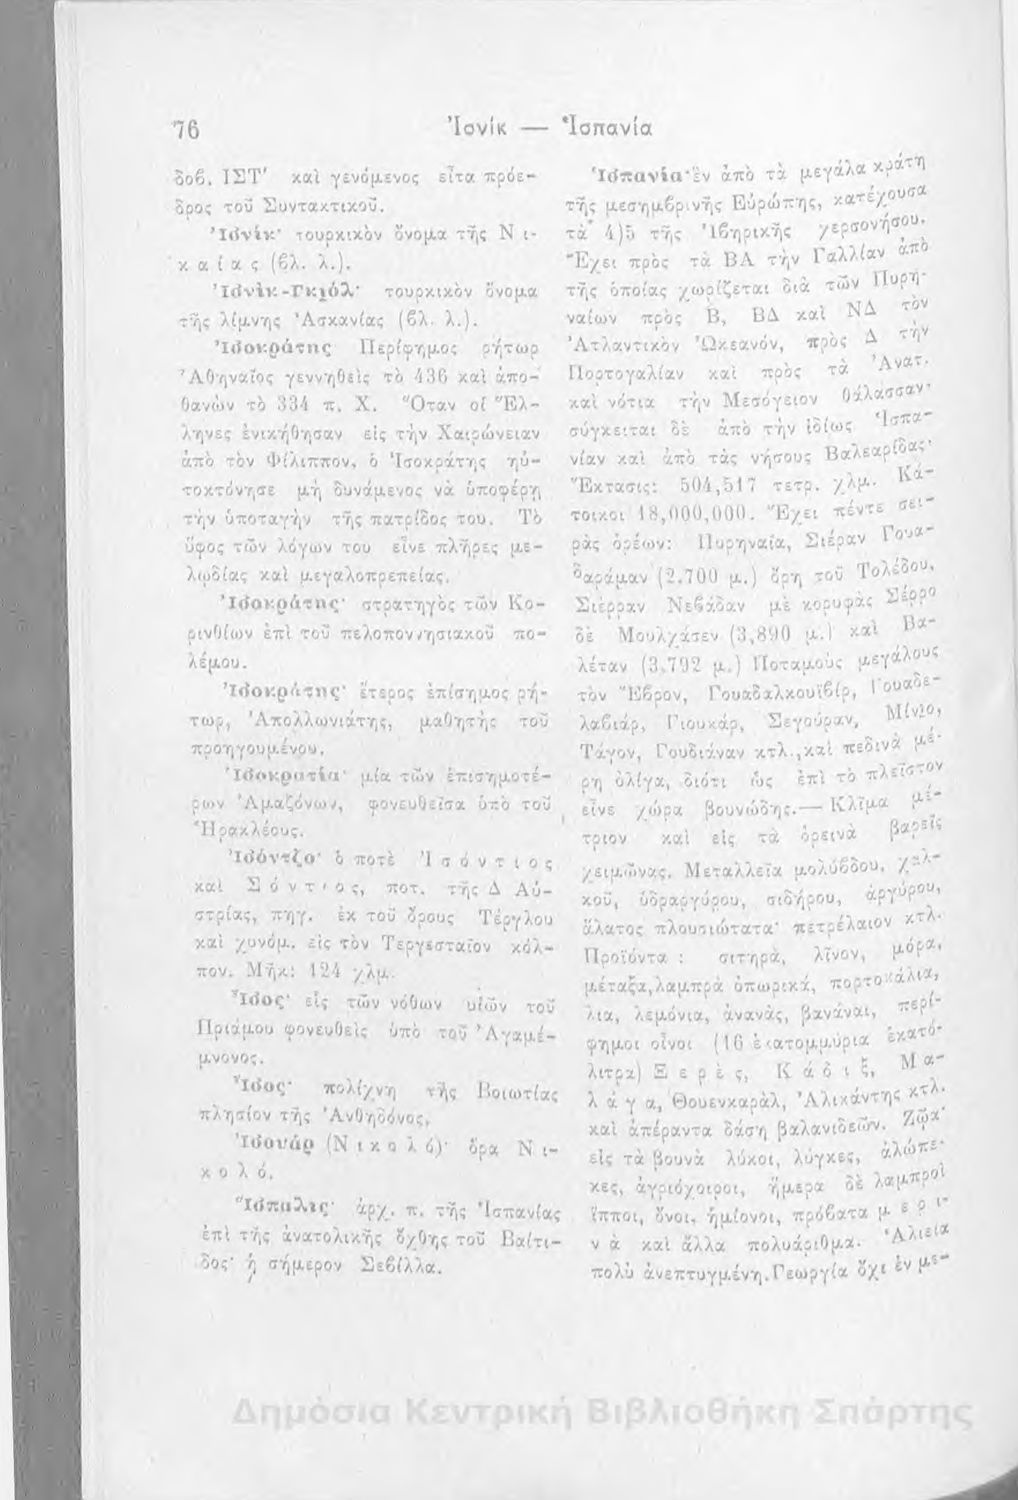 76
Ἰσνίκ — Ἱσπανία
δοβ. ΙΣΤ' καὶ γενόμενος εἶτα πρόε-
δρος τοῦ Συντακτικοῦ.
Ἰσνίκ· τουρκικὸν ὄνομα τῆς Ν ι-
κ α ί α ς (βλ. λ.).
Ἰσνὶκ-Γκιόλ· τουρκικὸν ὄνομα
τῆς λίμνης Ἀσκανίας (βλ. λ.).
Ἰσοκράτης Περίφημος ρήτωρ
Ἀθηναῖος γεννηθεὶς τὸ 436 καὶ ἀπο-
θανὼν τὸ 334 π. Χ. Ὅταν οἱ Ἕλ-
ληνες ἐνικήθησαν εἰς τὴν Χαιρώνειαν
ἀπὸ τὸν Φίλιππον, ὁ Ἰσοκράτης ηὐ-
τοκτόνησε μὴ δυνάμενος νὰ ὑποφέρῃ
τὴν ὑποταγὴν τῆς πατρίδος του. Τὸ
ὕφος τῶν λόγων του εἶνε πλῆρες με-
λῳδίας καὶ μεγαλοπρεπείας.
Ἰσοκράτης· στρατηγὸς τῶν Κο-
ρινθίων ἐπὶ τοῦ πελοποννησιακοῦ πο-
λέμου.
Ἰσοκράτης· ἕτερος ἐπίσημος ρή-
τωρ, Ἀπολλωνιάτης, μαθητὴς τοῦ
προηγουμένου.
Ἰσοκρατία· μία τῶν ἐπισημοτέ-
ρων Ἀμαζόνων, φονευθεῖσα ὑπὸ τοῦ
Ἡρακλέους.
Ἰσόντζο· ὁ ποτὲ Ἰ σ ό ν τ ι ο ς
καὶ Σ ό ν τ ι ο ς, ποτ. τῆς Δ Αὐ-
στρίας, πηγ. ἐκ τοῦ ὄρους Τέργλου
καὶ χυνόμ. εἰς τὸν Τεργεσταῖον κόλ-
πον. Μῆκ: 124 χλμ.
Ἶσος· εἷς τῶν νόθων υἱῶν τοῦ
Πριάμου φονευθεὶς ὑπὸ τοῦ Ἀγαμέ-
μνονος.
Ἶσος· πολίχνη τῆς Βοιωτίας
πλησίον τῆς Ἀνθηδόνος.
Ἰσουάρ (Ν ι κ ο λ ό)· ὅρα Ν ι-
κ ο λ ό.
Ἵσπαλις· ἀρχ. π. τῆς Ἱσπανίας
ἐπὶ τῆς ἀνατολικῆς ὄχθης τοῦ Βαίτι-
δος· ἡ σήμερον Σεβίλλα.
Ἱσπανία· ἓν ἀπὸ τὰ μεγάλα κράτη
τῆς μεσημβρινῆς Εὐρώπης, κατέχουσα
τὰ 4)5 τῆς Ἰβηρικῆς χερσονήσου.
Ἔχει πρὸς τὰ ΒΑ τὴν Γαλλίαν ἀπὸ
τῆς ὁποίας χωρίζεται διὰ τῶν Πυρη-
ναίων πρὸς Β, ΒΔ καὶ ΝΔ τὸν
Ἀτλαντικὸν Ὠκεανόν, πρὸς Δ τὴν
Πορτογαλίαν καὶ πρὸς τὰ Ἀνατ.
καὶ νότια τὴν Μεσόγειον θάλασσαν·
σύγκειται δὲ ἀπὸ τὴν ἰδίως Ἱσπα-
νίαν καὶ ἀπὸ τὰς νήσους Βαλεαρίδας·
Ἔκτασις: 504,517 τετρ. χλμ. Κά-
τοικοι 18,000,000. Ἔχει πέντε σει-
ρὰς ὀρέων: Πυρηναῖα, Σιέραν Γουα-
δαράμαν (2.700 μ.) ὄρη τοῦ Τολέδου,
Σιέρραν Νεβάδαν μὲ κορυφὰς Σέρρο
δὲ Μουλχάσεν (3,890 μ.) καὶ Βα-
λέταν (3.792 μ.) Ποταμοὺς μεγάλους
τὸν Ἔβρον, Γουαδαλκουϊβίρ, Γουαδε-
λαβιάρ, Γιουκάρ, Σεγούραν, Μίνιο,
Τάγον, Γουδιάναν κτλ., καὶ πεδινὰ μέ-
ρη ὀλίγα, διότι ὡς ἐπὶ τὸ πλεῖστον
εἶνε χώρα βουνώδης.— Κλῖμα μέ-
τριον καὶ εἰς τὰ ὀρεινὰ βαρεῖς
χειμῶνας. Μεταλλεῖα μολύβδου, χαλ-
κοῦ, ὑδραργύρου, σιδήρου, ἀργύρου,
ἅλατος πλουσιώτατα· πετρέλαιον κτλ.
Προϊόντα : σιτηρά, λῖνον, μόρα,
μέταξα, λαμπρὰ ὀπωρικά, πορτοκάλια,
λια, λεμόνια, ἀνανὰς, βανάναι, περί-
φημοι οἶνοι (16 ἑκατομμύρια ἑκατό-
λιτρα) Ξ ε ρ ὲ ς, Κ ά δ ι ξ, Μ α-
λ ά γ α, Θουενκαράλ, Ἀλικάντης κτλ.
καὶ ἀπέραντα δάση βαλανιδεῶν. Ζῷα
εἰς τὰ βουνὰ λύκοι, λύγκες, ἀλώπε-
κες, ἀγριόχοιροι, ἥμερα δὲ λαμπροὶ
ἵπποι, ὄνοι, ἡμίονοι, πρόβατα μ ε ρ ι-
ν ὰ καὶ ἄλλα πολυάριθμα. Ἁλιεία
πολὺ ἀνεπτυγμένη. Γεωργία ὄχι ἐν με-
Δημόσια Κεντρική Βιβλιοθήκη Σπάρτης